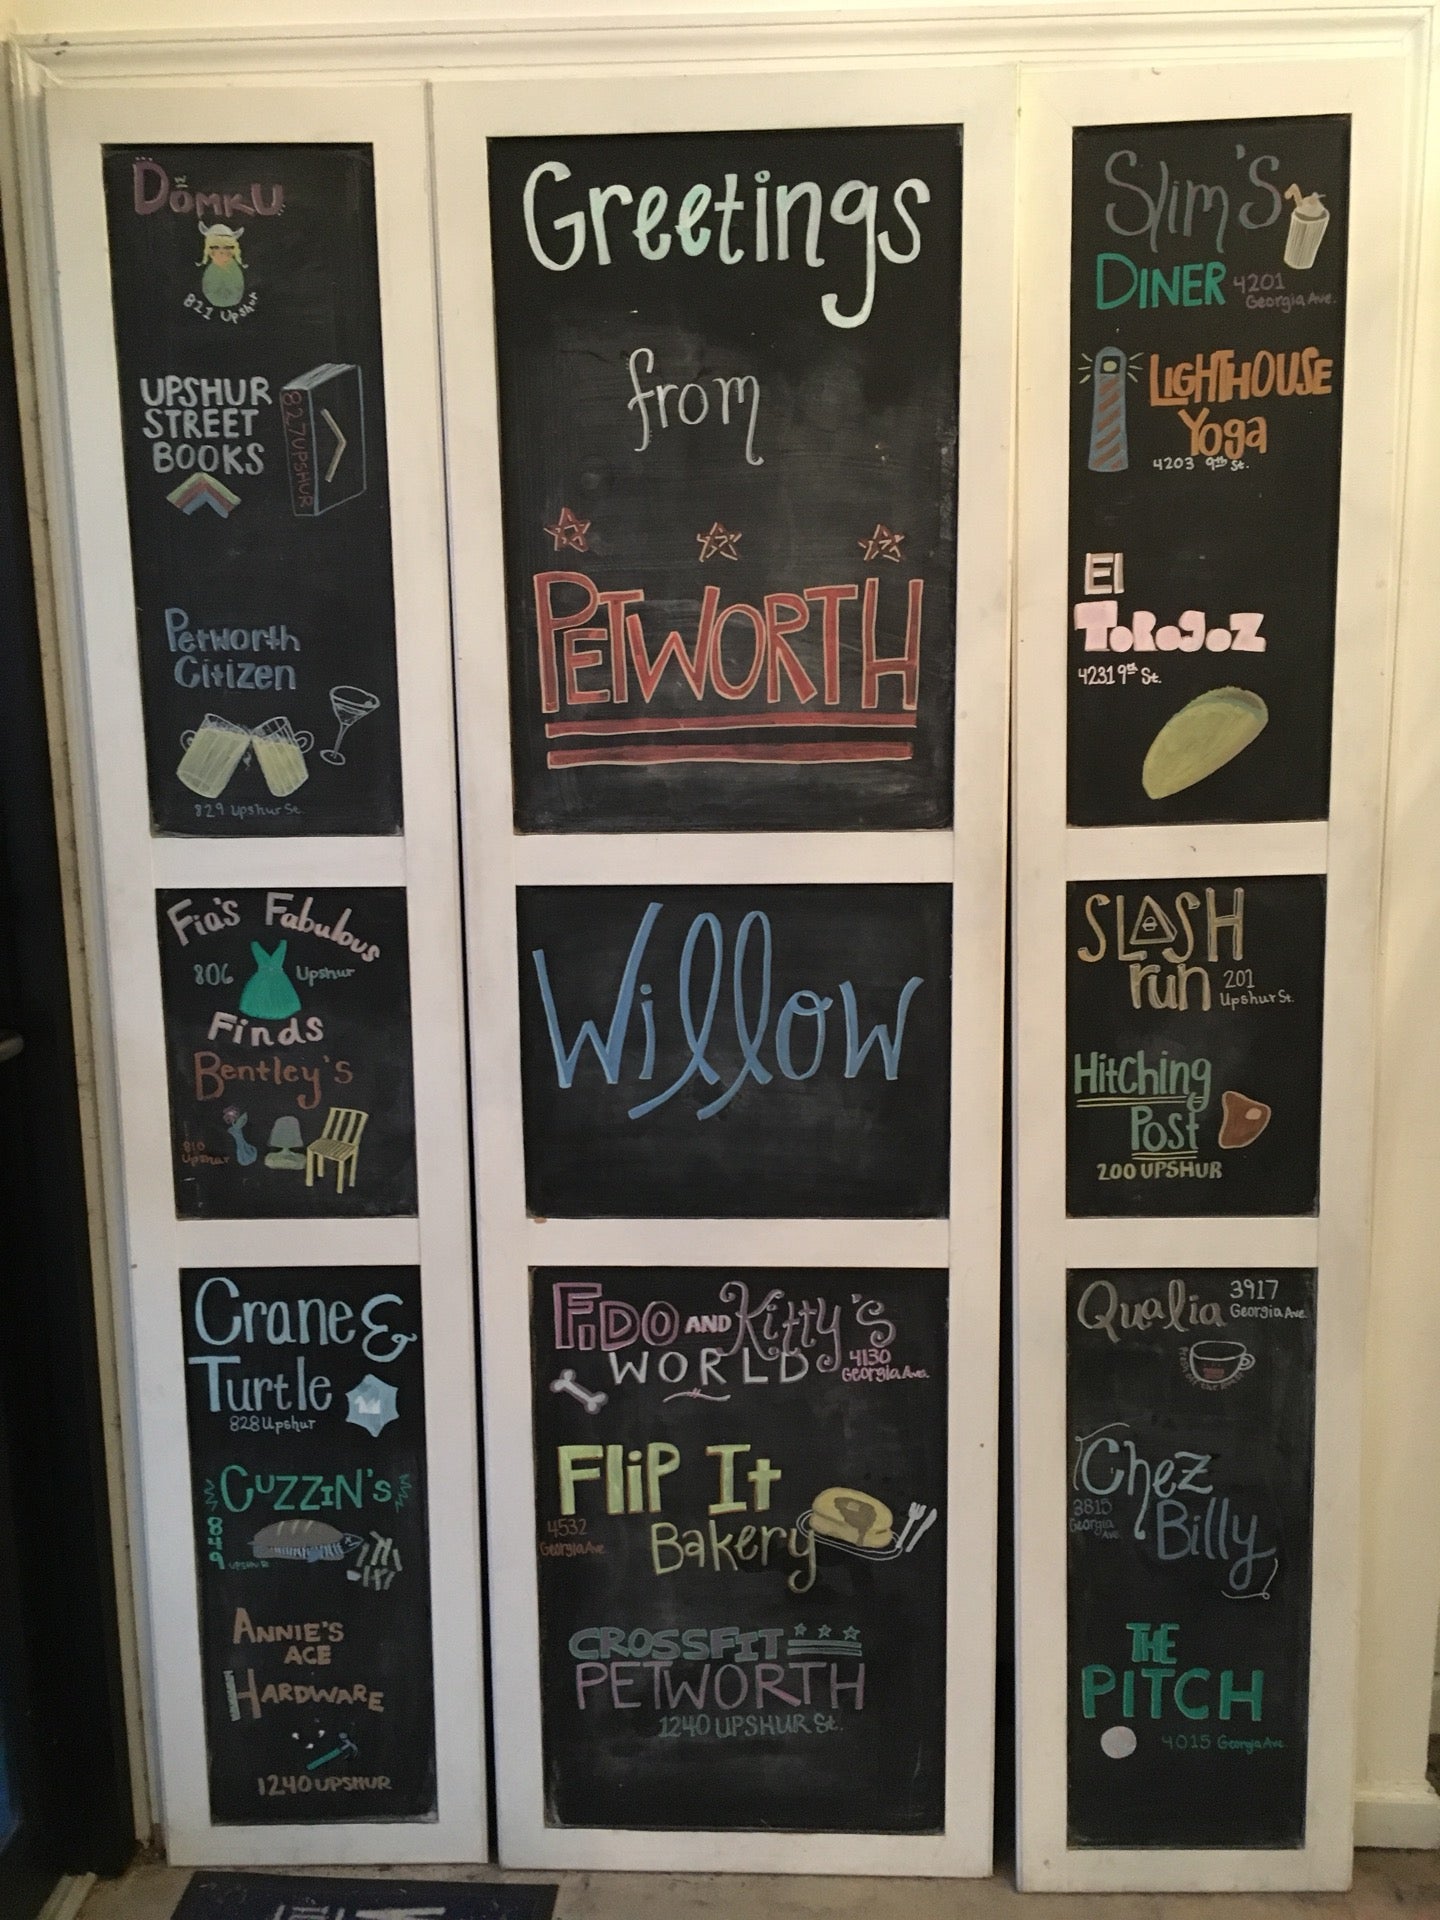 DOMKU
821 Upshur
UPSHUR
STREET
BOOKS
827 UPSHUR
Petworth
Citizen
829 Upshur St.
Fia's Fabulous
806 Upshur
Finds
Bentley's
810
Upshur
Crane &
Turtle
828 Upshur
CUZZIN'S
849
UPSHUR
ANNIE'S
ACE
HARDWARE
1240 UPSHUR
Greetings
from
PETWORTH
Willow
FIDO AND Kitty's
WORLD
4130
Georgia Ave.
FLIP It
Bakery
4532
Georgia Ave
CROSSFIT
PETWORTH
1240 UPSHUR St.
Slim's
DINER
4201
Georgia Ave.
LIGHTHOUSE
Yoga
4203 9th St.
El
ToRogoZ
4231 9th St.
SLASH
run
201
Upshur St.
Hitching
Post
200 UPSHUR
Qualia
3917
Georgia Ave.
Chez
Billy
3815
Georgia
Ave.
THE
PITCH
4015 Georgia Ave